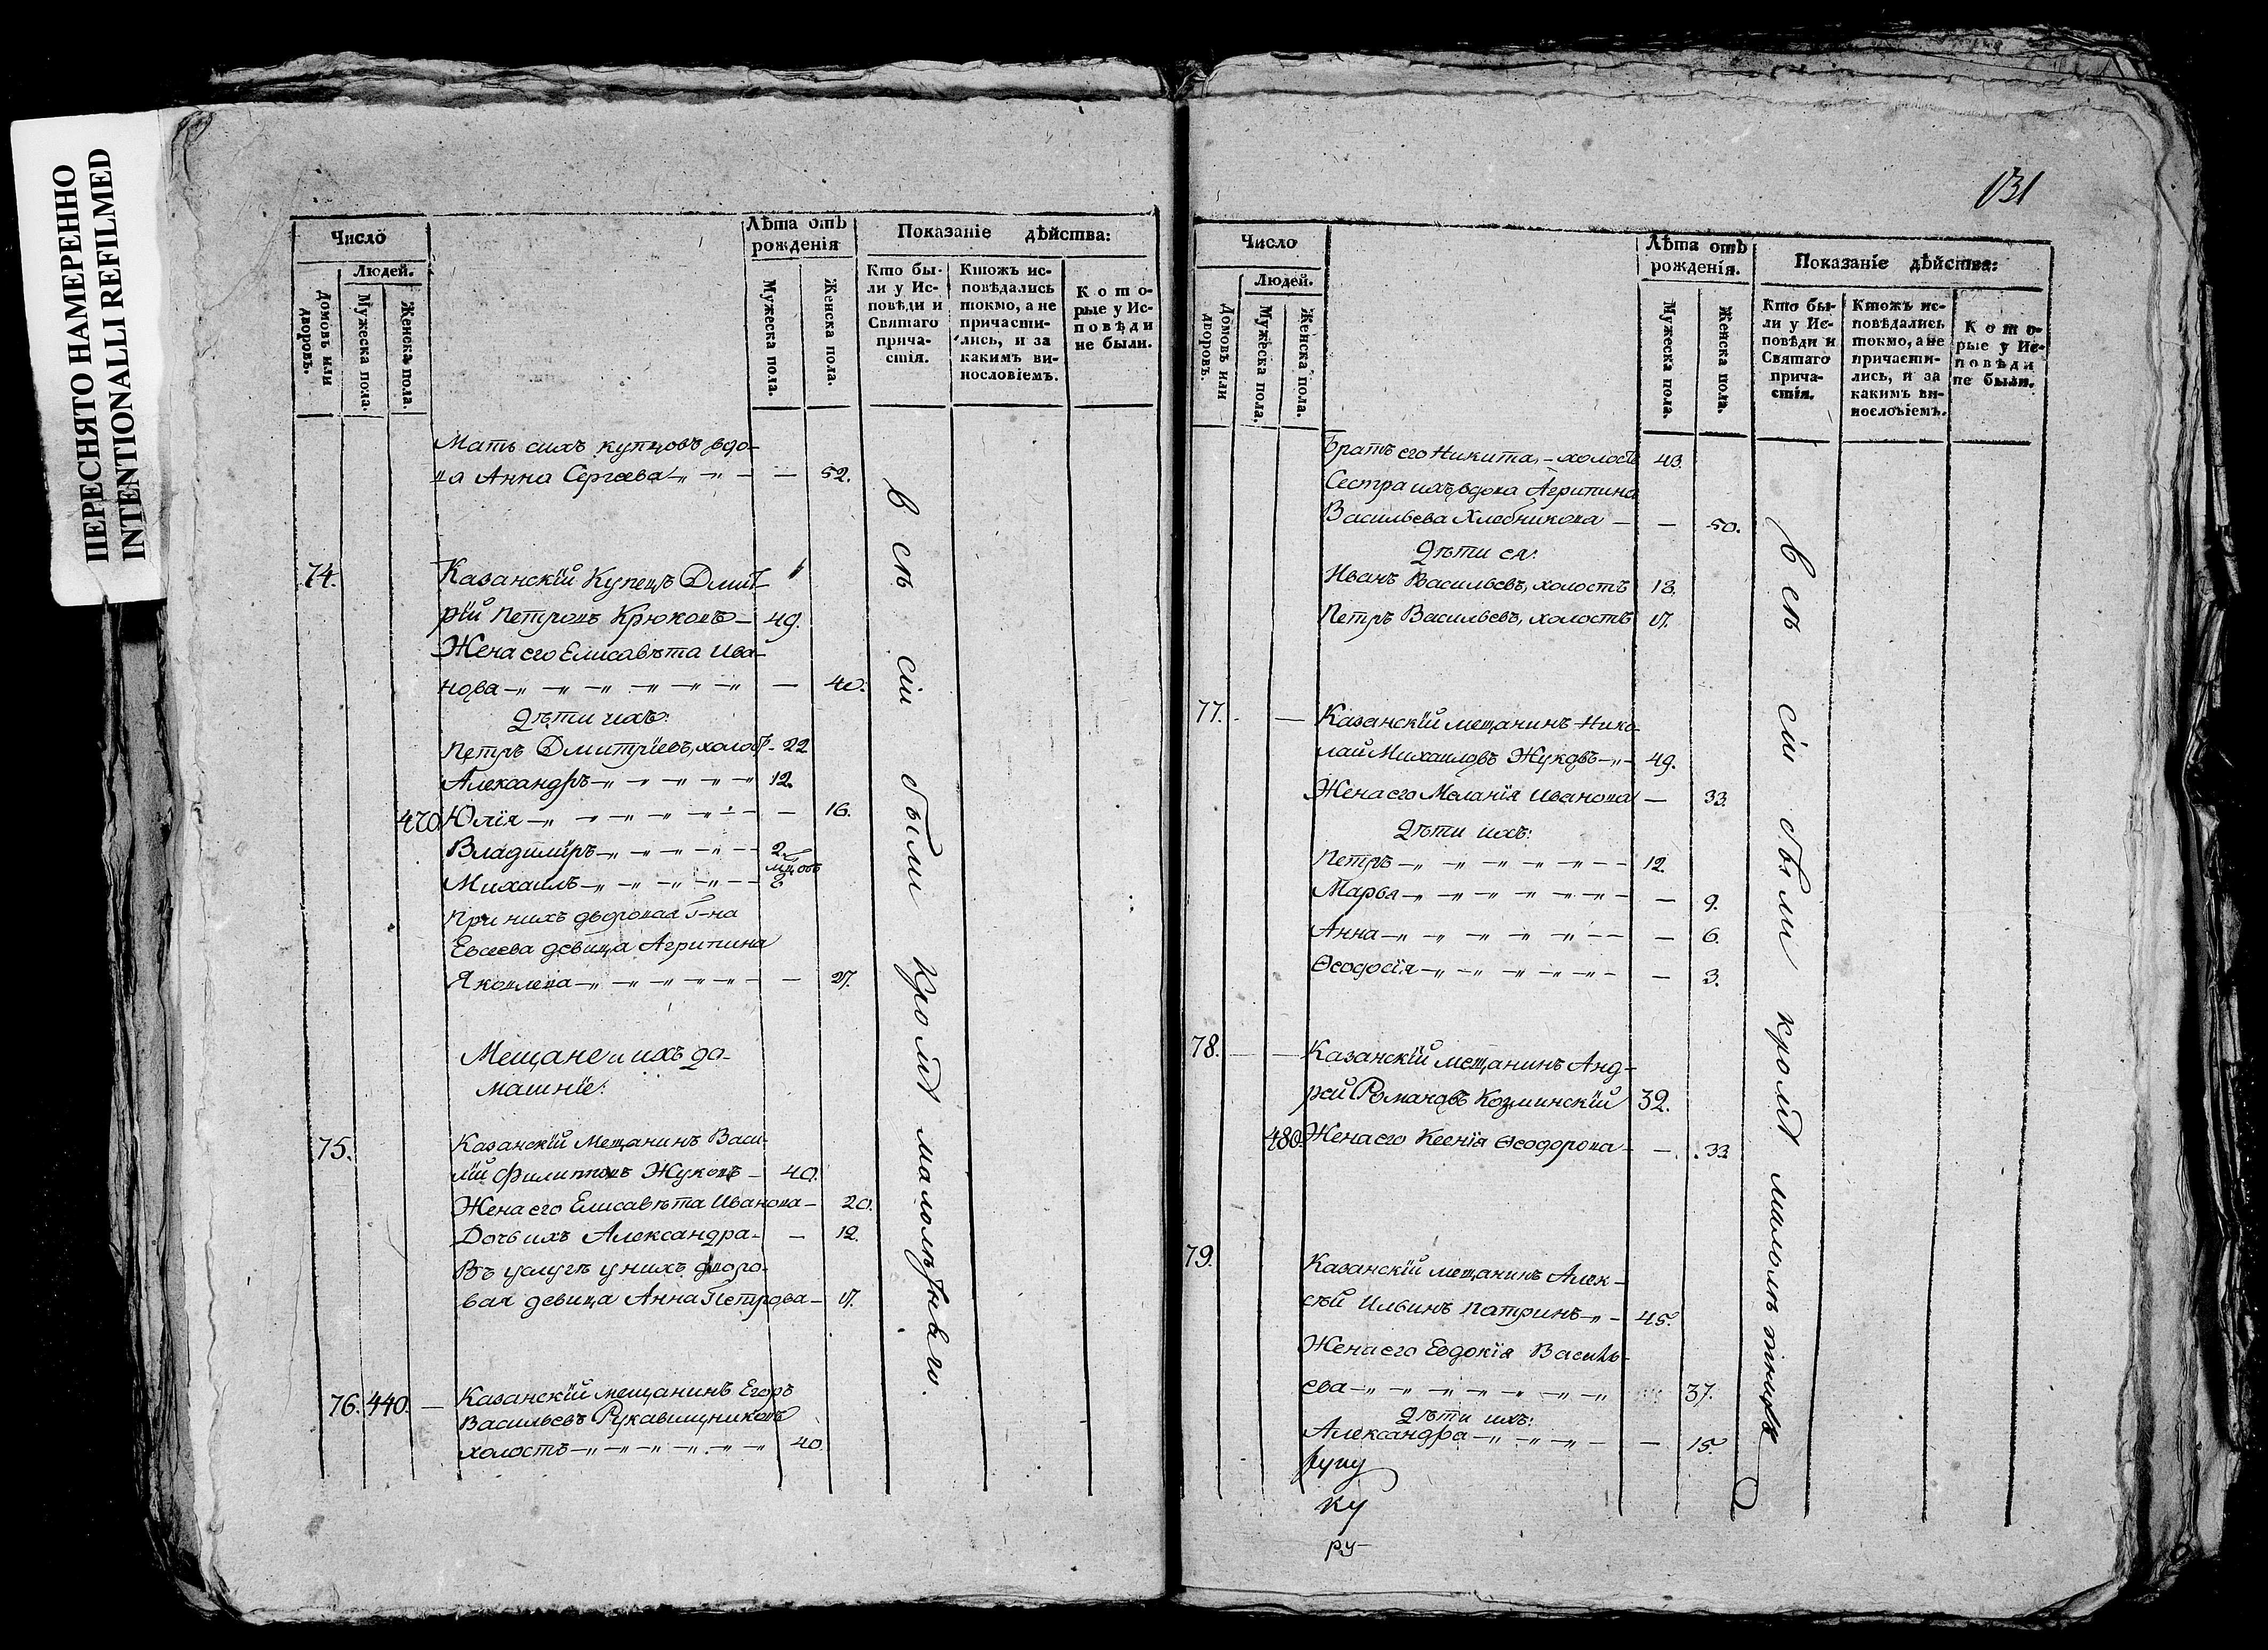 ПЕРЕСНЯТО НАМЕРЕННО
INTENTIONALLI REFILMED
Число
Людей.
Домовъ или дворовъ.
Мужеска пола.
Женска пола.
Лѣта отъ рожденія
Мужеска пола.
Женска пола.
Показаніе дѣйства:
Кто были у Исповѣди и Святаго причастія.
Ктожъ исповѣдались токмо, а не причастились, и за какимъ винословіемъ.
Которые у Исповѣди не были.
Мать сихъ купцовъ вдо-
ва Анна Сергѣева — 52.
74. Казанскїй Купецъ Дмит-
рїй Петровъ Крюковъ — 49.
Жена его Елисавѣта Ива-
нова — 40.
Дѣти ихъ:
Петръ Дмитрїевъ, холостъ - 22
Александръ — 12.
470. Юлїя — 16.
Владимїръ — 2.
Михаилъ — мцовъ 8
При нихъ дворовая Г-на
Евсеева девица Агрипина
Яковлева — 27.
Мещане и ихъ до-
машнїе:
75. Казанскїй Мещанинъ Васи-
лїй Филиповъ Жуковъ — 40.
Жена его Елисавѣта Иванова — 20.
Дочь ихъ Александра — 12.
Въ услугѣ у нихъ дворо-
вая девица Анна Петрова — 17.
76. 440. — Казанскїй мещанинъ Егоръ
Васильевъ Рукавишниковъ
холостъ — 40
всѣ сіи были кромѣ малолѣтныхъ.
131
Число
Людей.
Домовъ или дворовъ.
Мужеска пола.
Женска пола.
Лѣта отъ рожденія.
Мужеска пола.
Женска пола.
Показаніе дѣйства:
Кто были у Исповѣди и Святаго причастія.
Ктожъ исповѣдались токмо, а не причастились, и за какимъ винословіемъ.
Которые у Исповѣди не были.
Братъ его Никита, — холостъ 43.
Сестра ихъ, вдова Агрипина
Васильева Хлебникова — 50.
Дѣти ея:
Иванъ Васильевъ, холостъ 18.
Петръ Васильевъ, холостъ 17.
77. — Казанскїй мещанинъ Нико-
лай Михаиловъ Жуковъ — 49.
Жена его Меланїя Иванова — 33.
Дѣти ихъ:
Петръ — 12.
Марья — 9.
Анна — 6.
Ѳеодосїя — 3.
78. — Казанскїй мещанинъ Анд-
рей Романовъ Козминскїй 32.
480. Жена его Ксенїя Ѳеодорова — 33
79. Казанскїй мещанинъ Алек-
сѣй Ильинъ Патринъ — 45.
Жена его Евдокїя Василь-
ева — 37.
Дѣти ихъ:
Александра — 15.
всѣ сіи были кромѣ малолѣтныхъ
ку
ру-